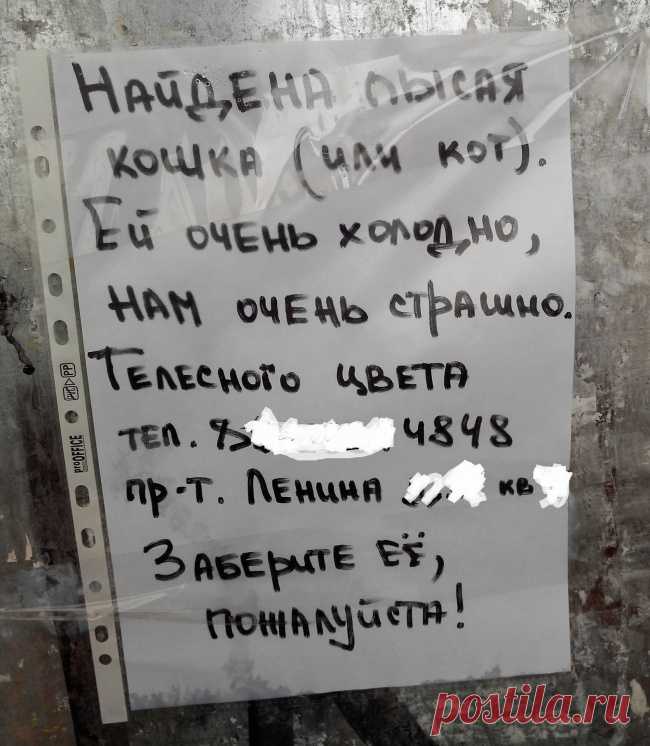 НАЙДЕНА ЛЫСАЯ
КОШКА (ИЛИ КОТ).
ЕЙ ОЧЕНЬ ХОЛОДНО,
НАМ ОЧЕНЬ СТРАШНО.
ТЕЛЕСНОГО ЦВЕТА
ТЕЛ. 8 4848
ПР-Т. ЛЕНИНА КВ
ЗАБЕРИТЕ ЕЁ,
ПОЖАЛУЙСТА!
PP
proOFFICE
postila.ru